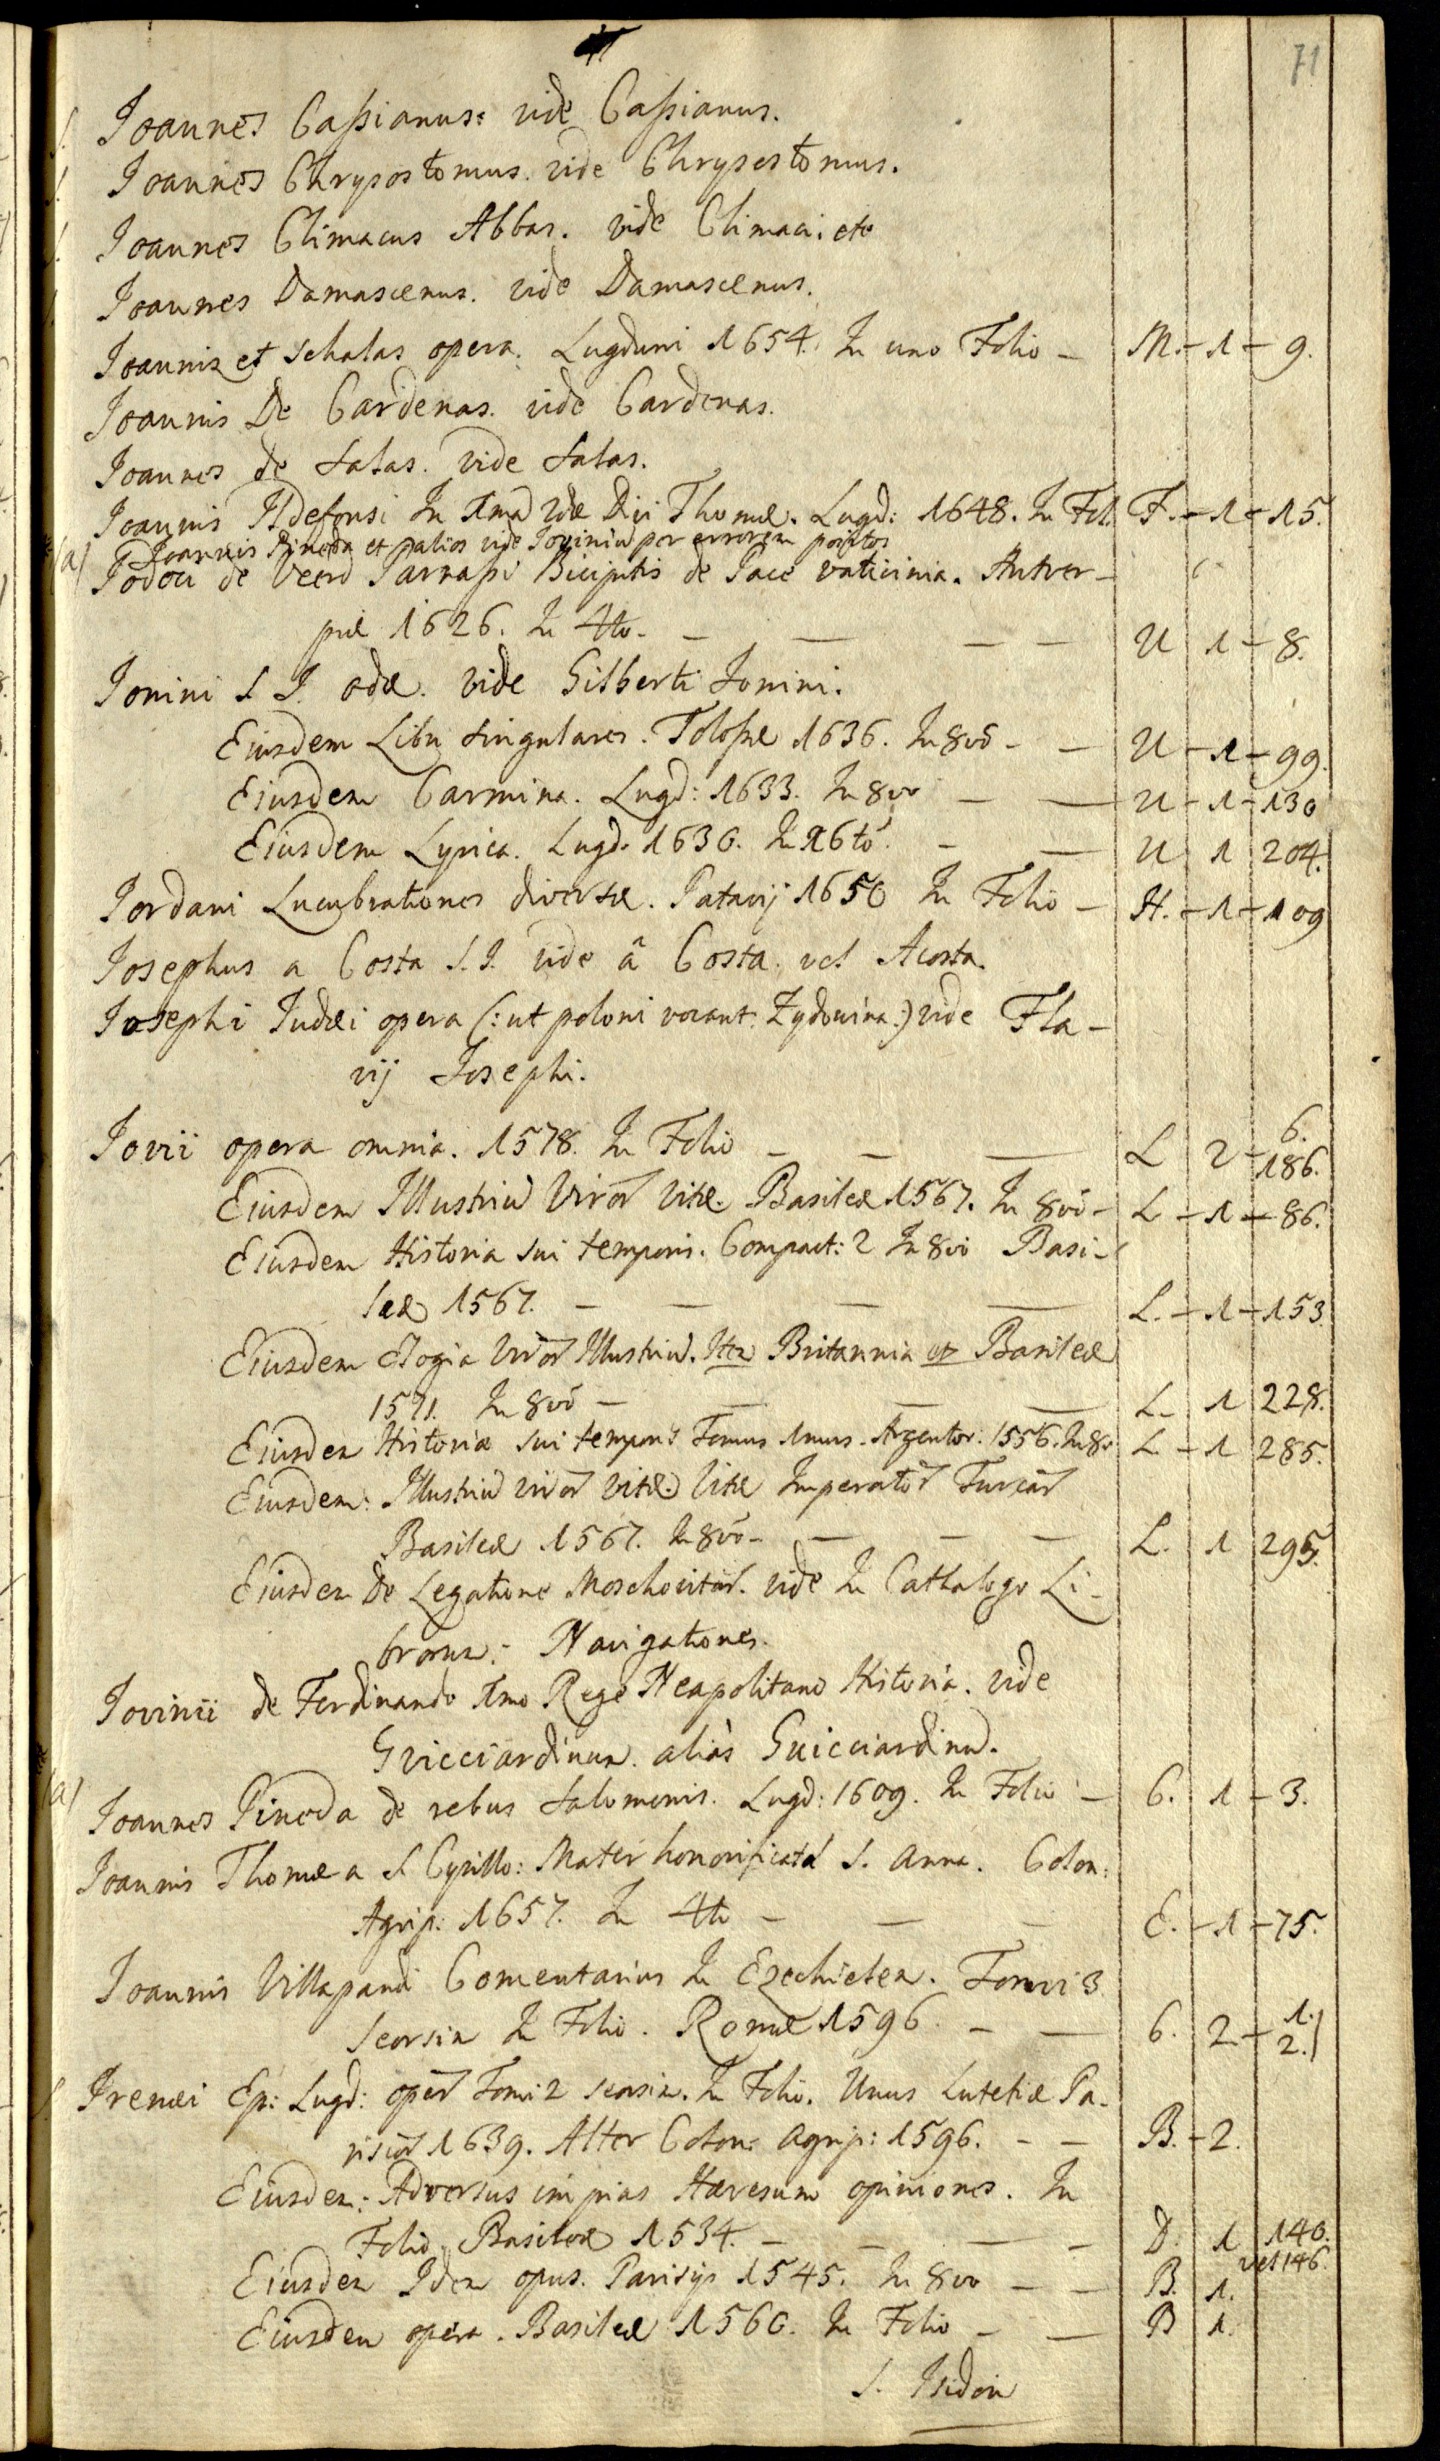 71
Joannes Caßianus: vide Caßianus.
Joannes Chrysostomus. vide Chrysostomus.
Joannes Climacus Abbas. vide Climaci etc
Joannes Damascenus. vide Damascenus.
Joannis et Schalas opera. Lugduni 1654. In uno Folio - M. - 1 - 9.
Joannis De Cardenas. vide Cardenas.
Joannes de Salas. vide Salas.
Joannis Ildefonsi In Divi Thomæ. Lugd: 1648. In Fol. F. - 1 - 15.
(a) Joannis Pineda et alios vide Joviniū per errorem positos
Jodoci de Weerd Parnaßi Bicipitis de Pace vaticinia. Antver-
piæ 1626. In 4to. - - - - U 1 - 8.
Jonini S J. odæ. vide Gilberti Jonini.
Eiusdem Libri singulares. Tolosæ 1636. In 8vō - - U - 1 - 99.
Eiusdem Carmina. Lugd: 1633. In 8vo - - U - 1 - 130
Eiusdem Lyrica. Lugd. 1630. In 16tō. - - U 1 204.
Jordani Lucubrationes diversæ. Patavij 1650 In Folio - H. - 1 - 109
Josephus a Costa S.J. vide â Costa. vel Acosta.
Josephi Judæi opera (: ut poloni vocant: Zydowina :) vide Fla-
vij Josephi.
Jovii opera omnia. 1578. In Folio - - - L 2 - 6.
186.
Eiusdem Illustriū Viror̄ Vitæ. Basileæ 1567. In 8vō - L - 1 - 86.
Eiusdem Historia sui temporis. Compact: 2 In 8vo Basi-
leæ 1567. - - - - L. - 1 - 153
Eiusdem Elogia Viror̄ Illustriū. Itē Britannia Basileæ
1571. In 8vō - - - - L. 1 228.
Eiusdem Historiæ sui temporis Tomus 1mus. Argentor. 1556. In 8o L - 1 285.
Eiusdem: Illustriū viror̄ vitæ. Vitæ Imperator̄ Turcar̄
Basileæ 1567. In 8vō - - - - L. 1 295.
Eiusdem De Legatione Moschovitar̄. vide In Cathalogo Li-
brorum: Navigationes.
Jovinii de Ferdinando 1mo Rege Neapolitano Historia. vide
Gvicciardinum. aliàs Guicciardinū.
(a) Joannes Pineda de rebus Salomonis. Lugd: 1609. In Folio - C. 1 - 3.
Joannis Thomæ a S Cyrillo: Mater honorificata S. Anna. Colon:
Agrip: 1657. In 4to - - - E. - 1 - 75.
Joannis Villapandi Comentarius In Ezechielem. Tomi 3
seorsim In Folio. Romæ 1596. - - C. 2 - 1.
2.)
Irenæi Ep: Lugd: oper̄ Tomi 2 seorsim. In Folio. Unus Lutetiæ Pa-
risior̄ 1639. Alter Colon: Agrip: 1596. - - B. - 2.
Eiusdem: Adversus impias Hæresum opiniones. In
Folio Basileæ 1534. - - - - D. 1 140.
vel 146.
Eiusdem Idem opus. Parisijs 1545. In 8vo - - B. 1.
Eiusdem opera. Basileæ 1560. In Folio - - B 1.
S. Isidori